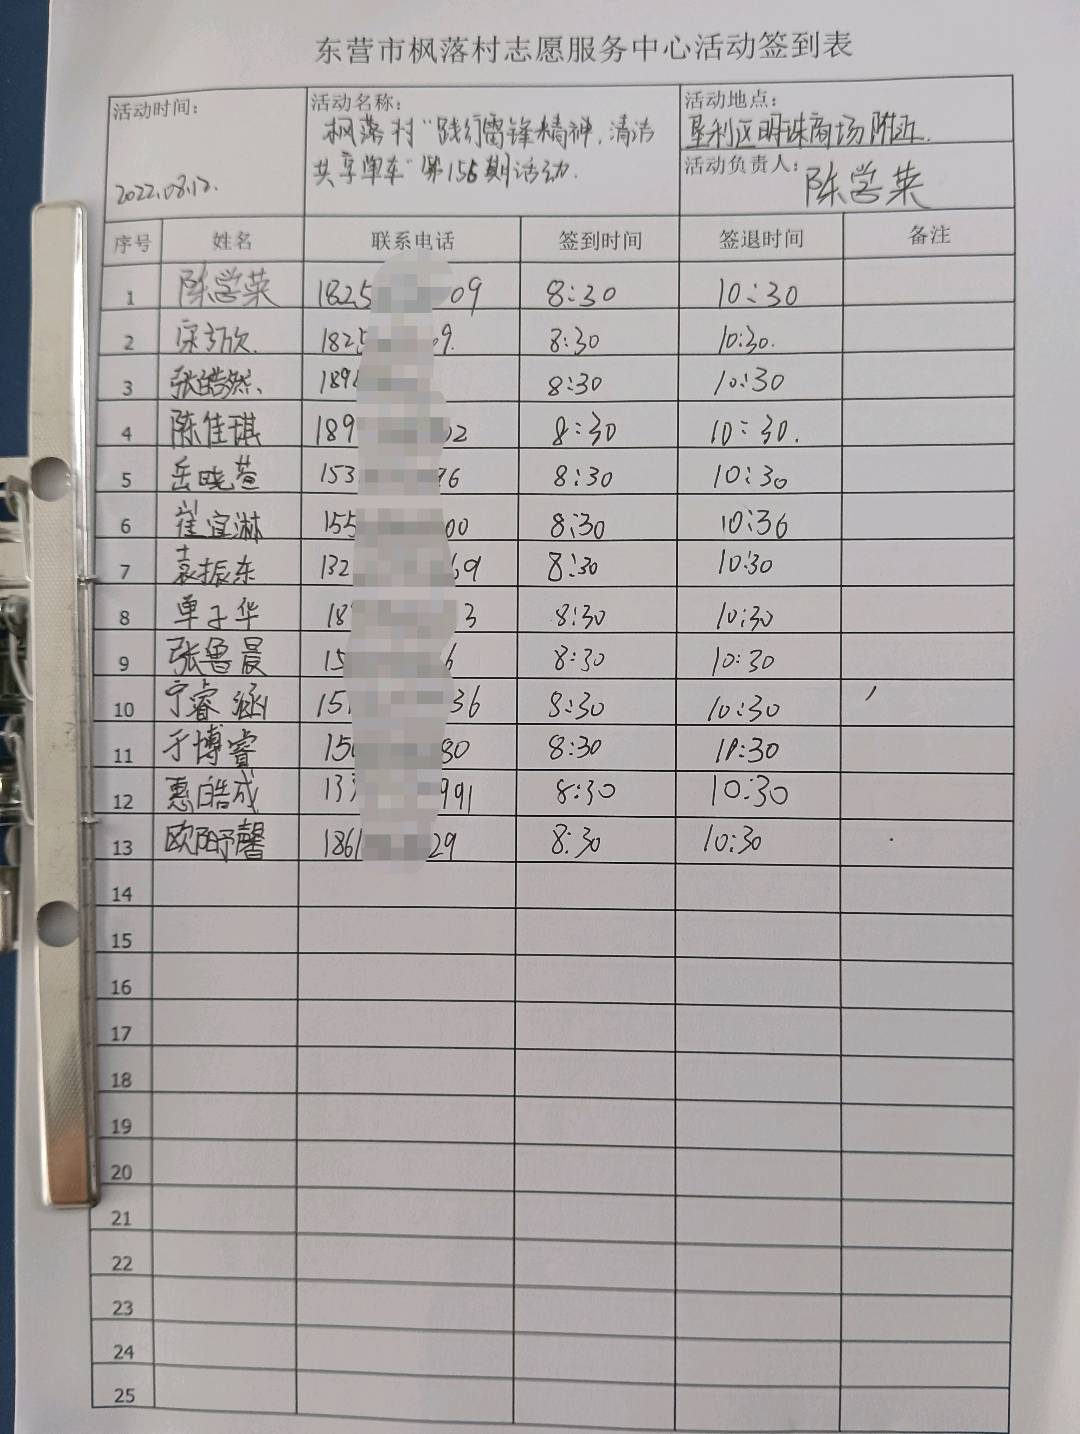 东营市枫落村志愿服务中心活动签到表
活动时间：
2022.08.12.
活动名称：
枫落村"践行雷锋精神，清洁
共享单车"第156期活动.
活动地点：
垦利区明珠商场附近.
活动负责人：陈学荣
序号 姓名 联系电话 签到时间 签退时间 备注
1 陈学荣 1825 09 8:30 10:30
2 1825 09. 8:30 10:30.
3 张皓然、 189 8:30 10:30
4 陈佳琪 189 02 8:30 10:30.
5 岳晓萱 153 8:30 10:30
6 崔宜淋 155 00 8:30 10:36
7 袁振东 132 69 8:30 10:30
8 单子华 18 3 8:30 10:30
9 张鲁晨 15 6 8:30 10:30
10 宁睿涵 15 36 8:30 10:30
11 于博睿 150 80 8:30 10:30
12 惠皓成 133 991 8:30 10:30
13 欧阳予馨 1861 29 8:30 10:30
14
15
16
17
18
19
20
21
22
23
24
25